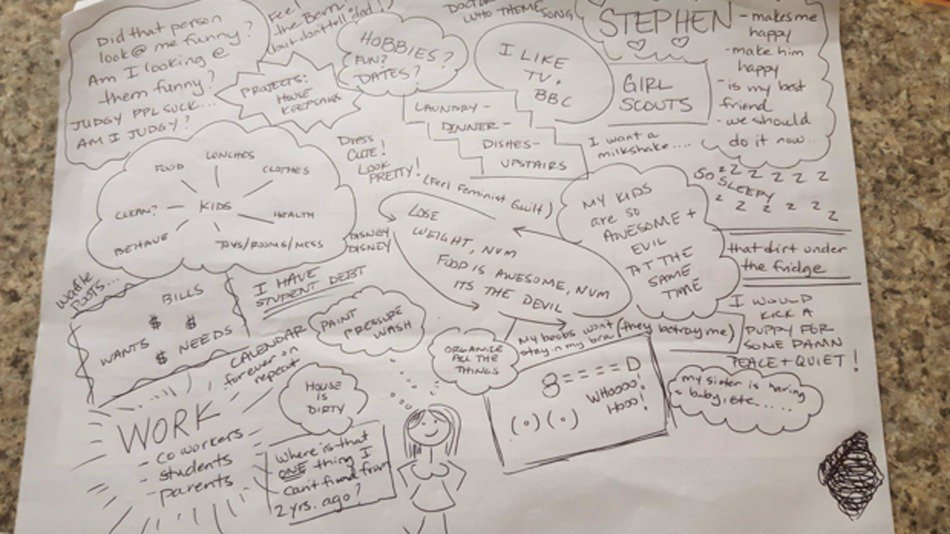 Did that person
look @ me funny?
Am I looking @
them funny?
JUDGY PPL SUCK...
AM I JUDGY?
Feel
the Bern!
but don't tell dad!
PROJECTS:
HOUSE
KEEPSAKES
HOBBIES?
FUN?
DATES?
DOCTOR
WHO THEME SONG
I LIKE
TV +
BBC
STEPHEN
- makes me
happy
- make him
happy
- is my best
friend
- we should
do it now...
GIRL
SCOUTS
LAUNDRY -
DINNER -
DISHES -
UPSTAIRS
I want a
milkshake....
SO SLEEPY
z z z z z z
z z z z z z
FOOD
LUNCHES
CLOTHES
CLEAN?
KIDS
HEALTH
BEHAVE
TOYS/ROOMS/MESS
DRESS
CUTE!
LOOK
PRETTY!
(feel feminist guilt)
DISNEY
DISNEY
LOSE
WEIGHT, NUM
FOOD IS AWESOME, NUM
ITS THE DEVIL
MY KIDS
are so
AWESOME +
EVIL
AT THE
SAME
TIME
that dirt under
the fridge
I WOULD
KICK A
PUPPY FOR
SOME DAMN
PEACE + QUIET!
BILLS
$ $
WANTS $ NEEDS
I HAVE
STUDENT DEBT
CALENDAR
forever on
repeat
PAINT
PRESSURE
WASH
ORGANIZE
ALL THE
THINGS
My boobs won't
stay in my bra
(they betray me)
8====D
WHOOOO!
HOOO!
(o)(o)
my sister is having
a baby, etc......
WORK
- coworkers
- students
- parents
HOUSE
IS
DIRTY
Where is that
ONE thing I
can't find from
2 yrs. ago?